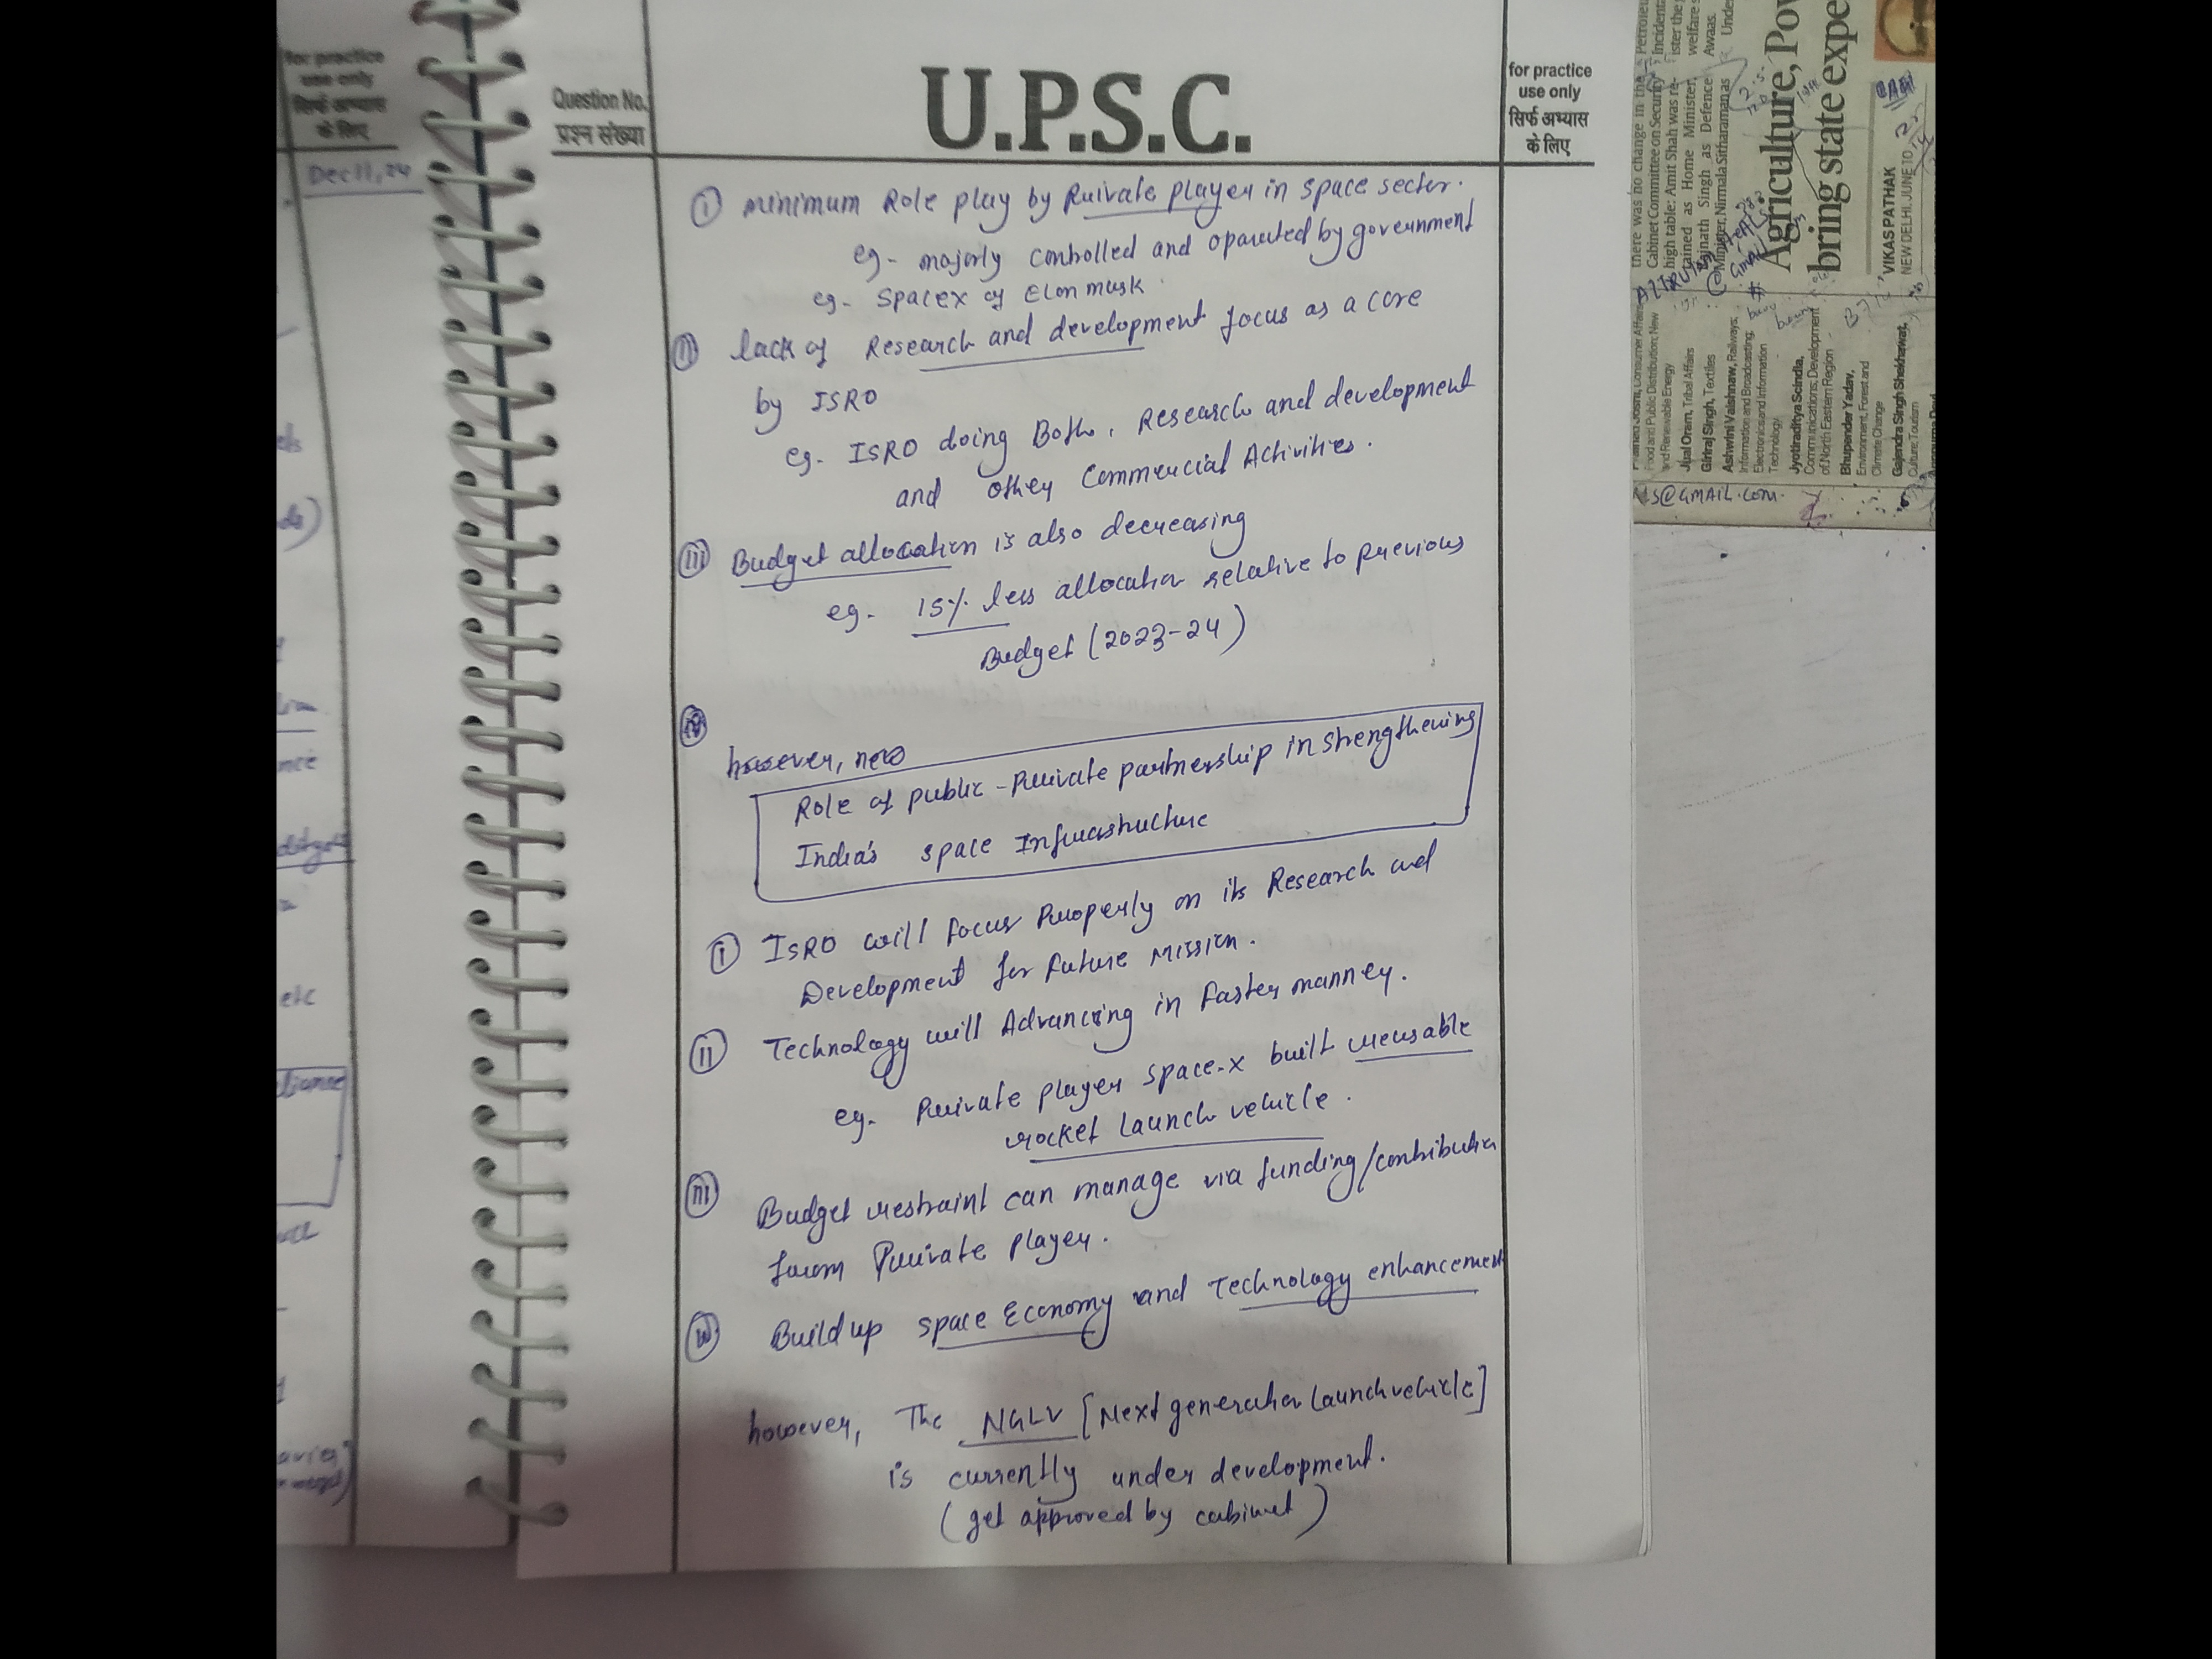 for practice
use only
सिर्फ अभ्यास
के लिए
Dec 11, 24
etc
Question No.
प्रश्न संख्या
U.P.S.C.
for practice
use only
सिर्फ अभ्यास
के लिए
(i) Minimum Role play by Private player in space sector.
eg- majorly controlled and oparated by government
eg- Spacex of Elon musk.
(ii) lack of Research and development focus as a core
by ISRO
eg. ISRO doing Both, Research and development
and other Commercial Activities.
(iii) Budget allocation is also decreasing
eg. 15% less allocation relative to previous
Budget (2023-24)
however, new
Role of public-Private partnership in strengthening
India's space Infrastructure
(i) ISRO will focus Properly on its Research and
Development for future Mission.
(ii) Technology will Advancing in faster manner.
eg. Private player space-x built reusable
rocket launch vehicle.
(iii) Budget restraint can manage via funding/contribution
from Private player.
(iv) Build up space Economy and Technology enhancement
however, The NGLV [Next generation Launch vehicle]
is currently under development.
(get approved by cabinet)
there was no change in the
Cabinet Committee on Security
high table: Amit Shah was re-
tained as Home Minister,
Rajnath Singh as Defence
Minister, Nirmala Sitharaman as
Agriculture, Pow
bring state expe
VIKAS PATHAK
NEW DELHI, JUNE 10
Food and Public Distribution; New
and Renewable Energy
Jual Oram, Tribal Affairs
Giriraj Singh, Textiles
Ashwini Vaishnaw, Railways;
Information and Broadcasting;
Electronics and Information
Technology
Jyotiraditya Scindia,
Communications; Development
of North Eastern Region
Bhupender Yadav,
Environment, Forest and
Climate Change
Gajendra Singh Shekhawat,
Culture; Tourism
S@GMAIL.COM.